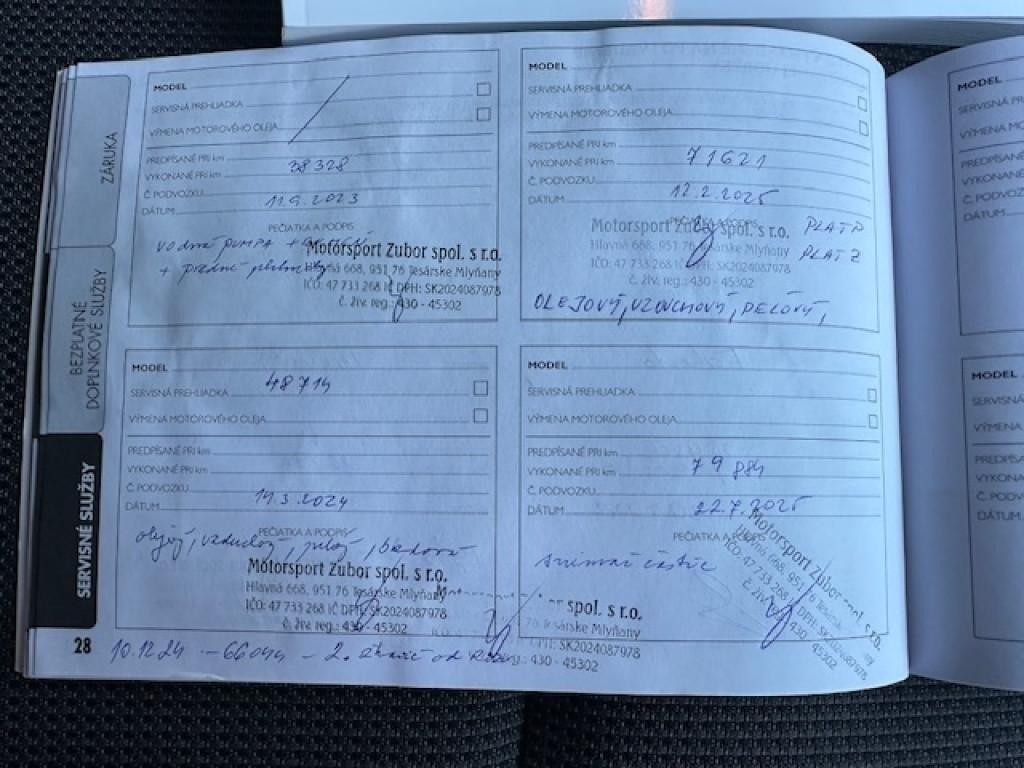 ZÁRUKA
BEZPLATNÉ
DOPLNKOVÉ SLUŽBY
SERVISNÉ SLUŽBY
MODEL
SERVISNÁ PREHLIADKA
VÝMENA MOTOROVÉHO OLEJA
PREDPÍSANÉ PRI km
VYKONANÉ PRI km 38328
Č. PODVOZKU
DÁTUM 11.9.2023
PEČIATKA A PODPIS
vodná pumpa +
+ predné
Motorsport Zubor spol. s r.o.
Hlavná 668, 951 76 Tesárske Mlyňany
IČO: 47 733 268 IČ DPH: SK2024087978
č. živ. reg.: 430 - 45302
MODEL
SERVISNÁ PREHLIADKA
VÝMENA MOTOROVÉHO OLEJA
PREDPÍSANÉ PRI km
VYKONANÉ PRI km 71621
Č. PODVOZKU
DÁTUM 12.2.2025
PEČIATKA A PODPIS
Motorsport Zubor spol. s r.o.
Hlavná 668, 951 76 Tesárske Mlyňany
IČO: 47 733 268 IČ DPH: SK2024087978
č. živ. reg.: 430 - 45302
PLAT P
PLAT Z
OLEJOVÝ, VZDUCHOVÝ, PEĽOVÝ,
MODEL
SERVISNÁ PREHLIADKA 48714
VÝMENA MOTOROVÉHO OLEJA
PREDPÍSANÉ PRI km
VYKONANÉ PRI km
Č. PODVOZKU
DÁTUM 14.3.2024
PEČIATKA A PODPIS
olejový, vzduchový, peľový,
Motorsport Zubor spol. s r.o.
Hlavná 668, 951 76 Tesárske Mlyňany
IČO: 47 733 268 IČ DPH: SK2024087978
č. živ. reg.: 430 - 45302
MODEL
SERVISNÁ PREHLIADKA
VÝMENA MOTOROVÉHO OLEJA
PREDPÍSANÉ PRI km
VYKONANÉ PRI km 79884
Č. PODVOZKU
DÁTUM 22.7.2025
PEČIATKA A PODPIS
snímač častíc
Motorsport Zubor spol. s r.o.
Hlavná 668, 951 76 Tesárske Mlyňany
IČO: 47 733 268 IČ DPH: SK2024087978
č. živ. reg.: 430 - 45302
spol. s r.o.
76 Tesárske Mlyňany
DPH: SK2024087978
reg.: 430 - 45302
28
10.12.24 - 66044 - 2. od
MODEL
SERVISNÁ
VÝMENA
PREDPÍSANÉ
VYKONANÉ
Č. PODVO
DÁTUM
MODEL
SERVISNÁ
VÝMENA
PREDPÍSA
VYKONAN
Č. PODVO
DÁTUM